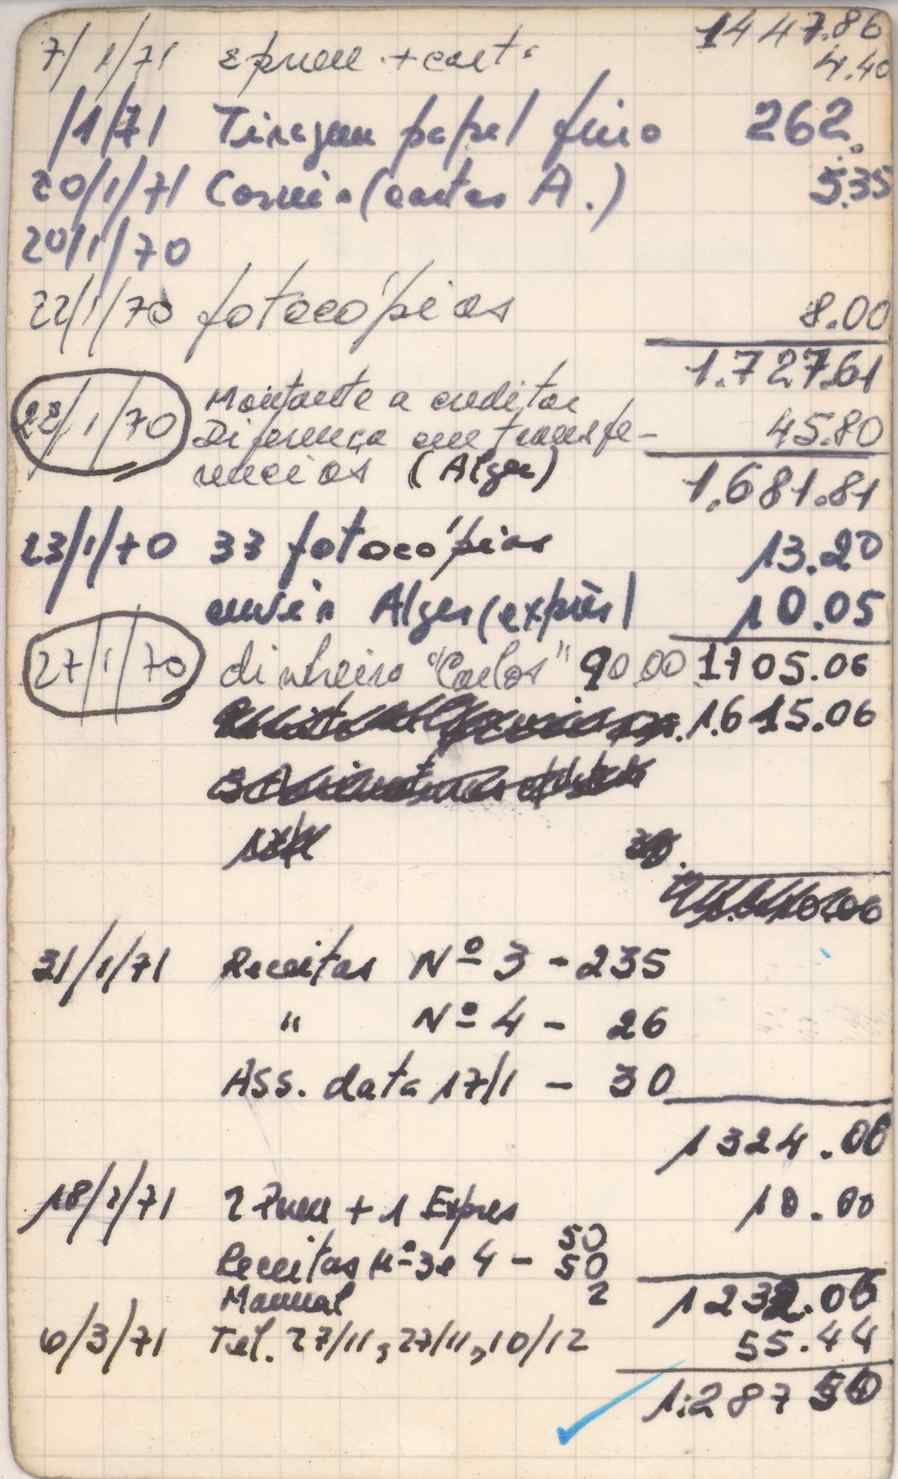 1447.86
7/1/71 2 pneu + cart. 4.40
/1/71 Tiragem papel fino 262.
20/1/71 Correio (cartas A.) 5.35
20/1/70
22/1/70 fotocópias 8.00
1.727.61
22/1/70 Montante a creditar
Diferença em transfe- 45.80
rencias (Alger) 1.681.81
23/1/70 33 fotocópias 13.20
envio Alger (exprès) 10.05
27/1/70 dinheiro "Carlos" 90.00 1705.06
1.615.06
31/1/71 Receitas Nº 3 - 235
" Nº 4 - 26
Ass. data 17/1 - 30
1324.06
18/2/71 2 Pneu + 1 Expres 10.00
50
Receitas Nº 3 e 4 - 50
Manual 2 1232.06
6/3/71 Tel. 27/11, 27/11, 10/12 55.44
1.287 50